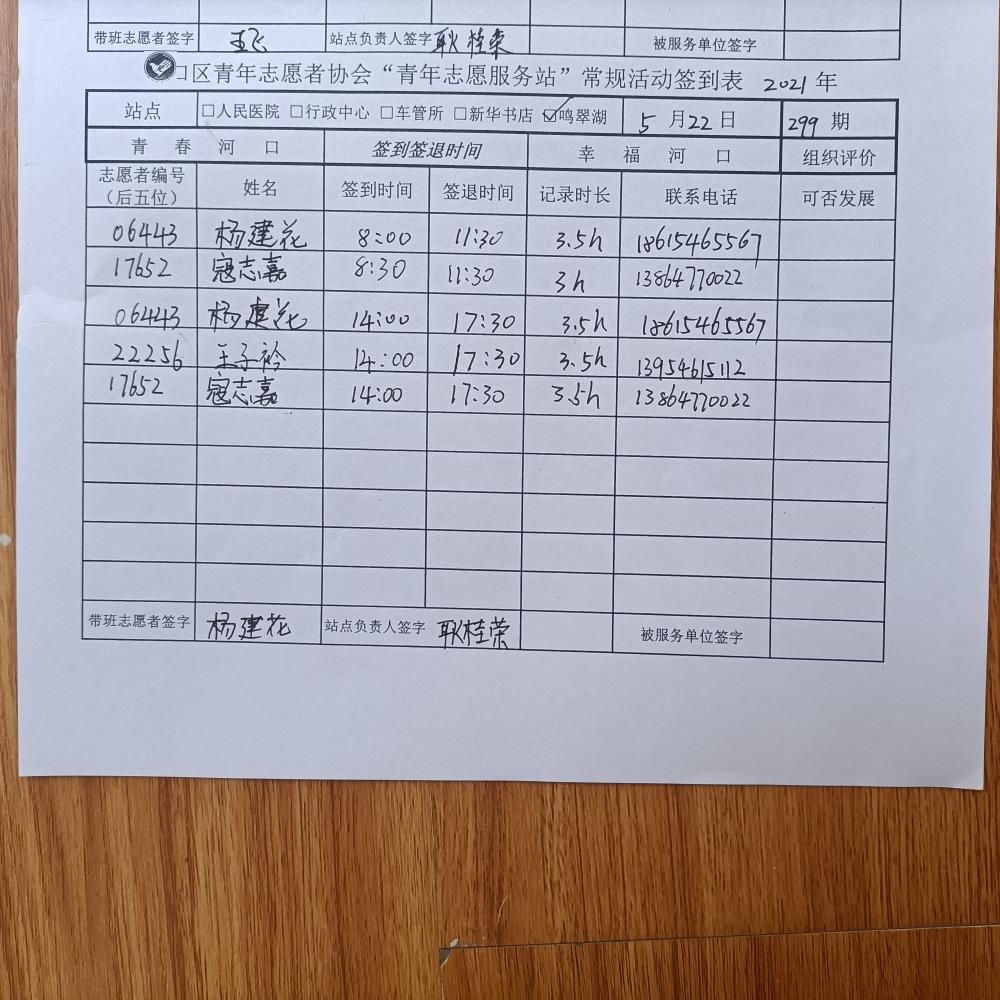 带班志愿者签字 王飞 站点负责人签字 耿桂荣 被服务单位签字
口区青年志愿者协会“青年志愿服务站”常规活动签到表 2021年
站点 □人民医院 □行政中心 □车管所 □新华书店 ☑鸣翠湖 5月22日 299期
青春河口 签到签退时间 幸福河口 组织评价
志愿者编号
（后五位） 姓名 签到时间 签退时间 记录时长 联系电话 可否发展
06443 杨建花 8:00 11:30 3.5h 18615465567
17652 寇志嘉 8:30 11:30 3h 13864770022
06443 杨建花 14:00 17:30 3.5h 18615465567
22256 王子衿 14:00 17:30 3.5h 13954615112
17652 寇志嘉 14:00 17:30 3.5h 13864770022
带班志愿者签字 杨建花 站点负责人签字 耿桂荣 被服务单位签字